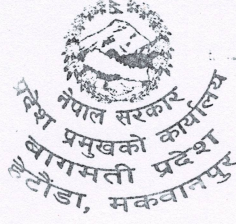 नेपाल सरकार
प्रदेश प्रमुखको कार्यालय
बागमती प्रदेश
हेटौंडा, मकवानपुर